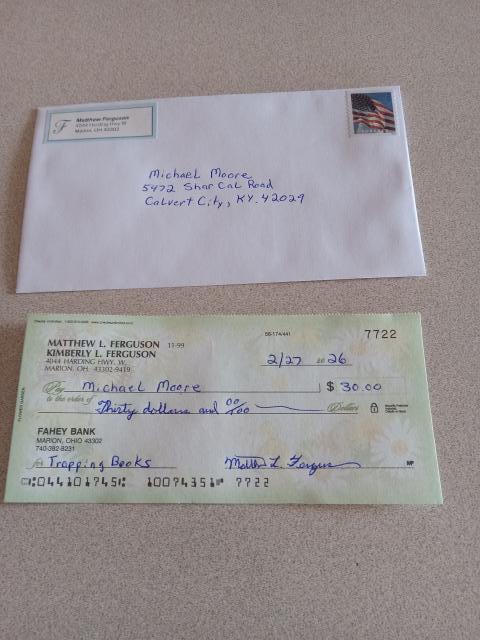 Matthew Ferguson
4044 Harding Hwy W
Marion, OH 43302
F
Michael Moore
5472 Shar Cal Road
Calvert City, KY. 42029
MATTHEW L. FERGUSON 11-99
KIMBERLY L. FERGUSON
4044 HARDING HWY. W.
MARION, OH. 43302-9419
56-174/441
7722
2/27 20 26
Pay to the order of Michael Moore $ 30.00
Thirty dollars and 00/100 Dollars
FAHEY BANK
MARION, OHIO 43302
740-382-8231
for Trapping Books Matth L. Fergus MP
⑆044101745⑆ 10074351⑈ 7722